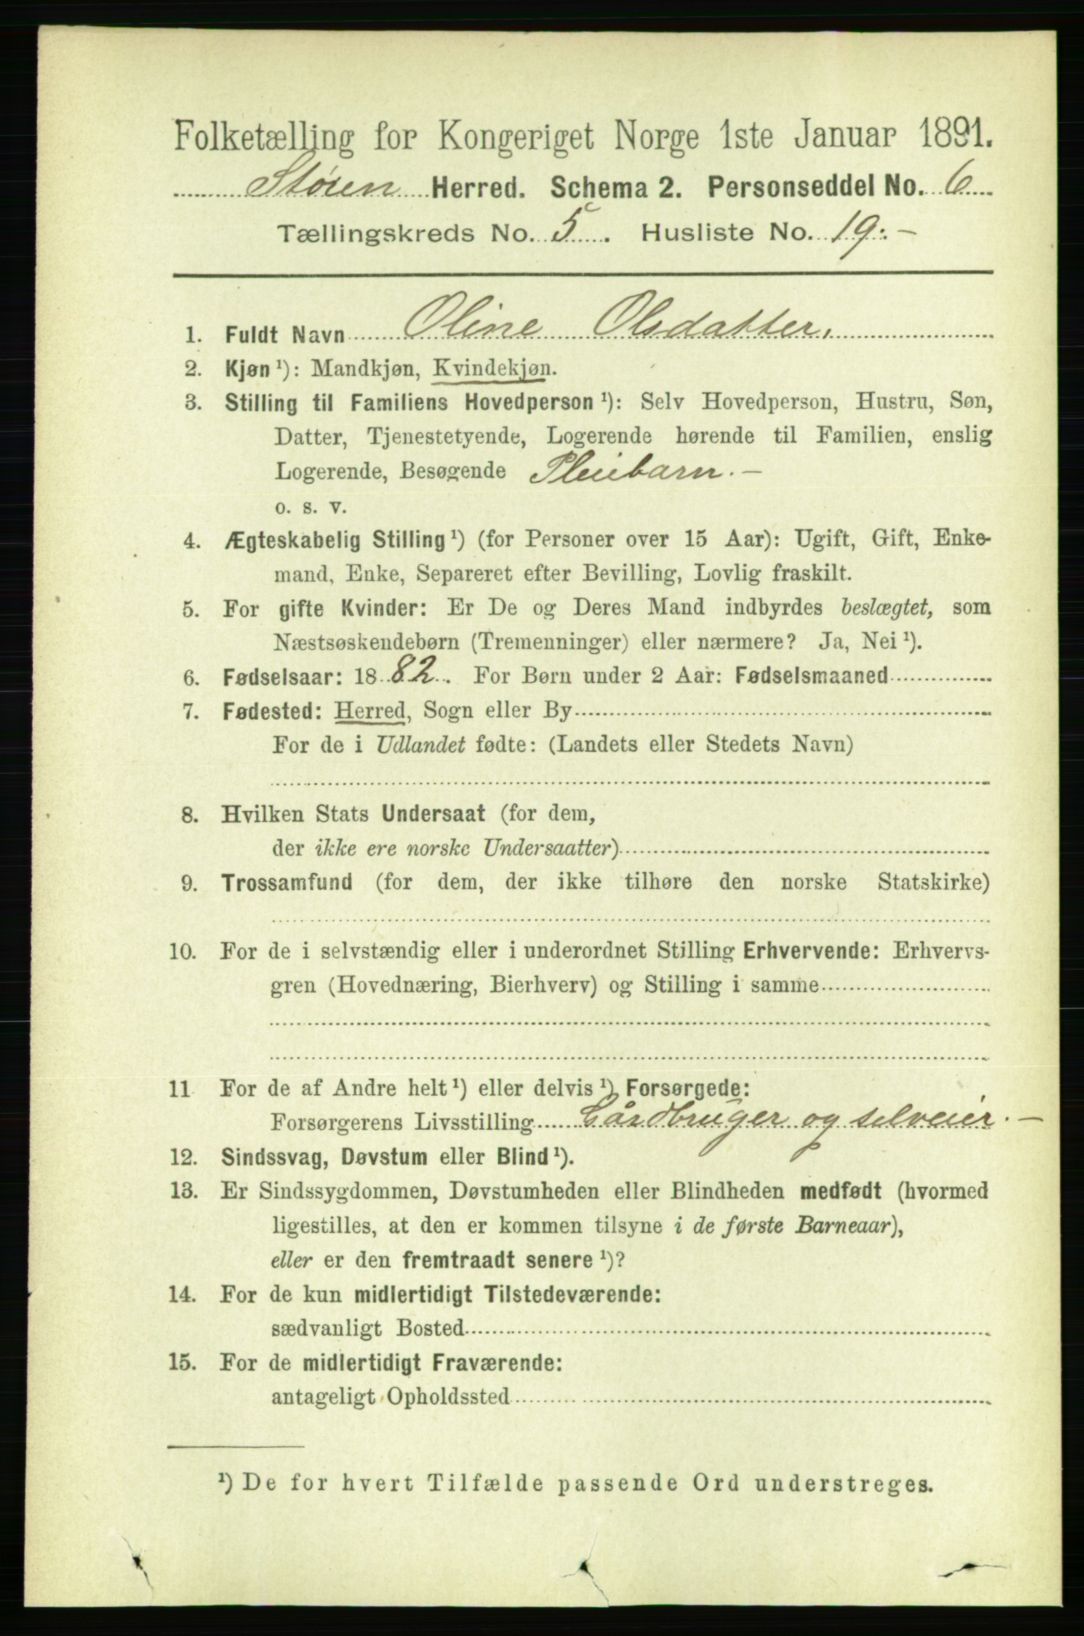 Folketælling for Kongeriget Norge 1ste Januar 1891.
Støren Herred. Schema 2. Personseddel No. 6
Tællingskreds No. 5. Husliste No. 19.-
1. Fuldt Navn Oline Olsdatter.
2. Kjøn ¹): Mandkjøn, Kvindekjøn.
3. Stilling til Familiens Hovedperson ¹): Selv Hovedperson, Hustru, Søn,
Datter, Tjenestetyende, Logerende hørende til Familien, enslig
Logerende, Besøgende Pleiebarn. -
o. s. v.
4. Ægteskabelig Stilling ¹) (for Personer over 15 Aar): Ugift, Gift, Enke-
mand, Enke, Separeret efter Bevilling, Lovlig fraskilt.
5. For gifte Kvinder: Er De og Deres Mand indbyrdes beslægtet, som
Næstsøskendebørn (Tremenninger) eller nærmere? Ja, Nei ¹).
6. Fødselsaar: 1882. For Børn under 2 Aar: Fødselsmaaned
7. Fødested: Herred, Sogn eller By
For de i Udlandet fødte: (Landets eller Stedets Navn)
8. Hvilken Stats Undersaat (for dem,
der ikke ere norske Undersaatter)
9. Trossamfund (for dem, der ikke tilhøre den norske Statskirke)
10. For de i selvstændig eller i underordnet Stilling Erhvervende: Erhvervs-
gren (Hovednæring, Bierhverv) og Stilling i samme
11 For de af Andre helt ¹) eller delvis ¹) Forsørgede:
Forsørgerens Livsstilling Gårdbruger og selveier. -
12. Sindssvag, Døvstum eller Blind ¹).
13. Er Sindssygdommen, Døvstumheden eller Blindheden medfødt (hvormed
ligestilles, at den er kommen tilsyne i de første Barneaar),
eller er den fremtraadt senere ¹)?
14. For de kun midlertidigt Tilstedeværende:
sædvanligt Bosted
15. For de midlertidigt Fraværende:
antageligt Opholdssted
¹) De for hvert Tilfælde passende Ord understreges.